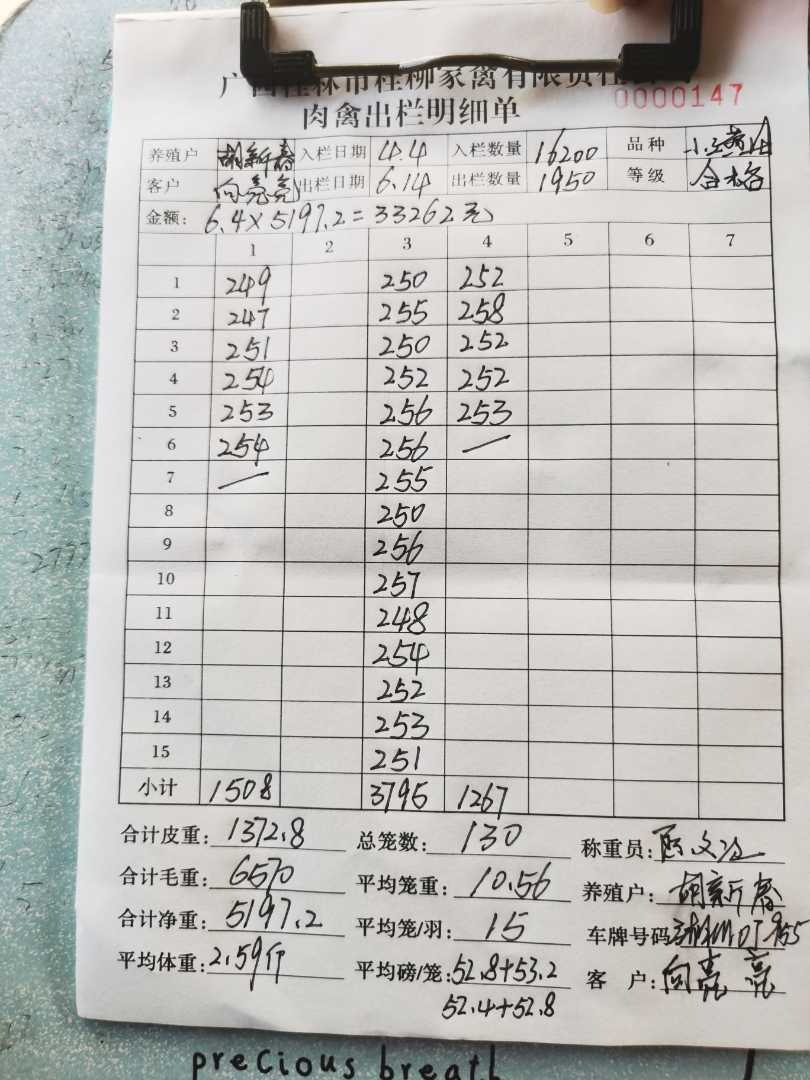 广西桂林市桂柳家禽有限责任公司
肉禽出栏明细单
0000147
养殖户 胡新春 入栏日期 4.4 入栏数量 16200 品种
客户 向亮亮 出栏日期 6.14 出栏数量 1950 等级 合格
金额: 6.4×5197.2=33262元
1 2 3 4 5 6 7
1 249 250 252
2 247 255 258
3 251 250 252
4 254 252 252
5 253 256 253
6 254 256 —
7 — 255
8 250
9 256
10 257
11 248
12 254
13 252
14 253
15 251
小计 1508 3795 1267
合计皮重: 1372.8 总笼数: 130 称重员:
合计毛重: 6570 平均笼重: 10.56 养殖户: 胡新春
合计净重: 5197.2 平均笼/羽: 15 车牌号码
平均体重: 2.59斤 平均磅/笼: 52.8+53.2 客 户: 向亮亮
52.4+52.8
precious breath